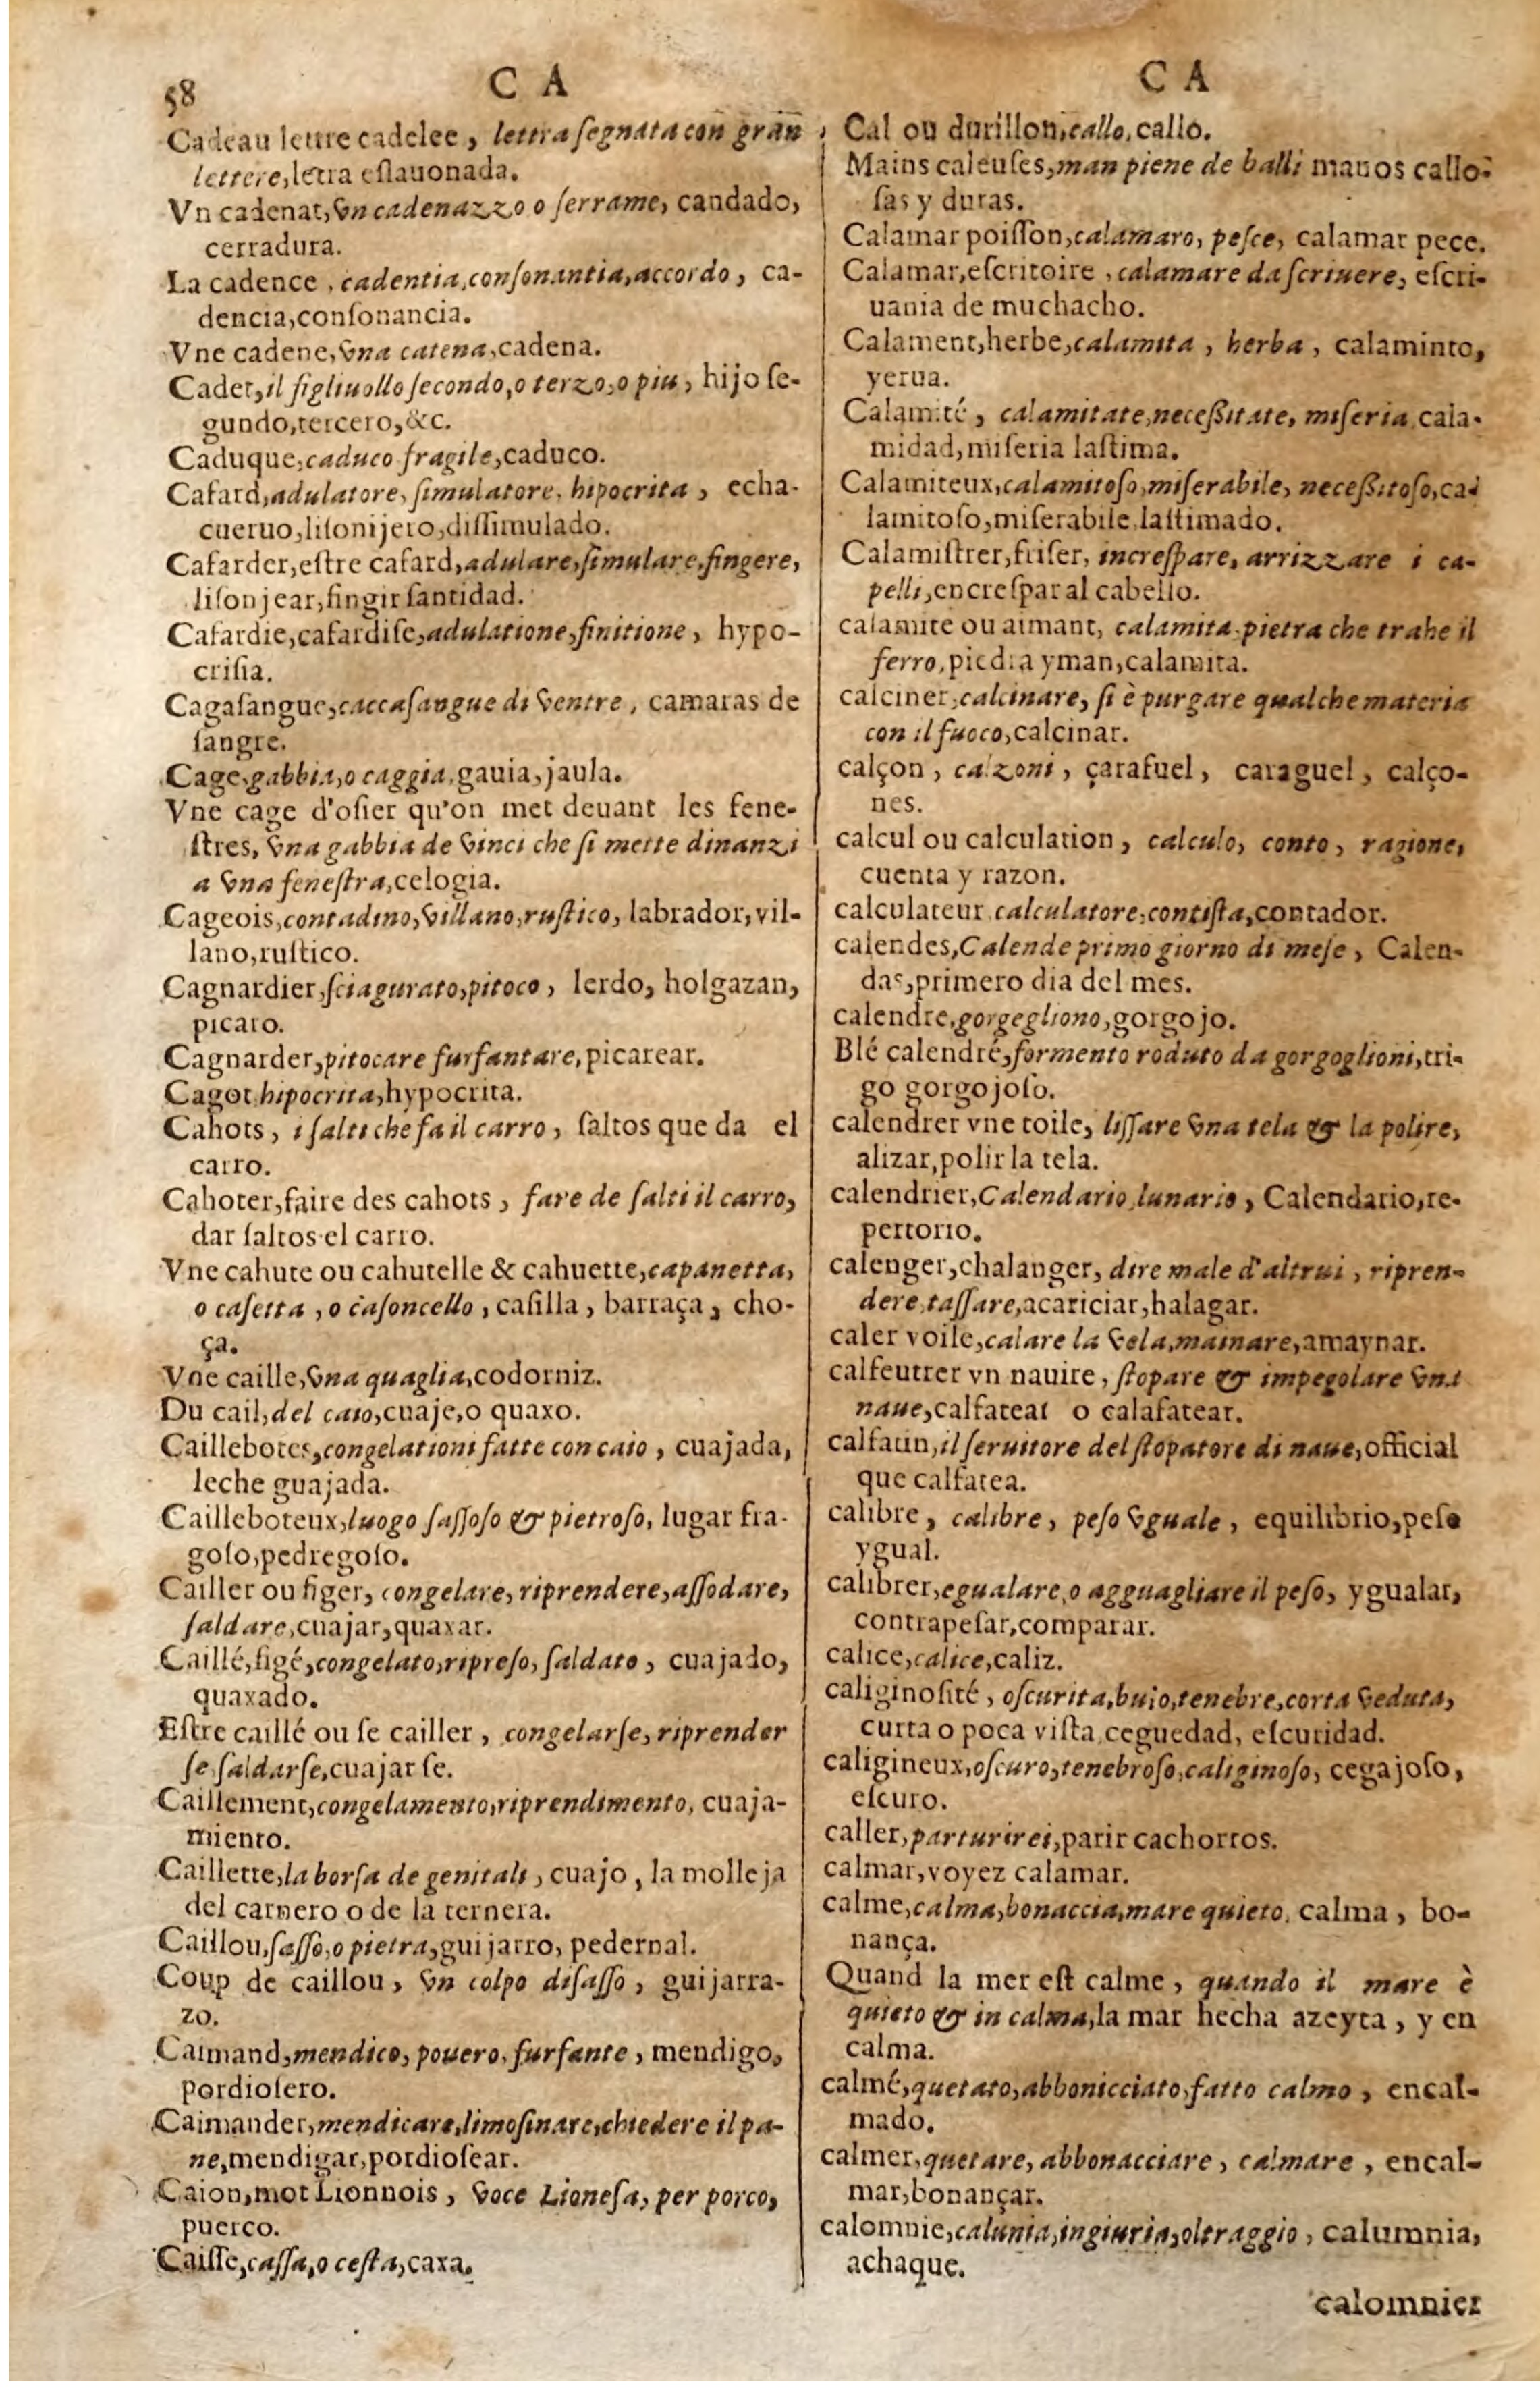 58
C A
Cadeau lettre cadelee, lettra ſegnata con gran
lettere,letra eſlauonada.
Vn cadenat, vn cadenazzo o ſerrame, candado,
cerradura.
La cadence, cadentia,conſonantia,accordo, ca-
dencia,conſonancia.
Vne cadene, vna catena,cadena.
Cadet,il figliuollo ſecondo,o terzo,o piu, hijo ſe-
gundo,tercero,&c.
Caduque,caduco fragile,caduco.
Cafard,adulatore, ſimulatore, hipocrita, echa-
cueruo,liſonijero,diſſimulado.
Cafarder,eſtre cafard,adulare,ſimulare,fingere,
liſonjear,fingir ſantidad.
Cafardie,cafardiſe,adulatione,finitione, hypo-
criſia.
Cagaſangue,caccaſangue di ventre, camaras de
ſangre.
Cage,gabbia,o caggia,gauia,jaula.
Vne cage d'oſier qu'on met deuant les fene-
ſtres, vna gabbia de vinci che ſi mette dinanzi
a vna feneſtra,celogia.
Cageois,contadino,villano,ruſtico, labrador,vil-
lano,ruſtico.
Cagnardier,ſciagurato,pitoco, lerdo, holgazan,
picaro.
Cagnarder,pitocare furfantare,picarear.
Cagot,hipocrita,hypocrita.
Cahots, i ſalti che fa il carro, ſaltos que da el
carro.
Cahoter,faire des cahots, fare de ſalti il carro,
dar ſaltos el carro.
Vne cahute ou cahutelle & cahuette,capanetta,
o caſetta, o caſoncello, caſilla, barraça, cho-
ça.
Vne caille,vna quaglia,codorniz.
Du cail,del caio,cuaje,o quaxo.
Caillebotes,congelationi fatte con caio, cuajada,
leche guajada.
Cailleboteux,luogo ſaſſoſo & pietroſo, lugar fra-
goſo,pedregoſo.
Cailler ou figer, congelare, riprendere,aſſodare,
ſaldare,cuajar,quaxar.
Caillé,figé,congelato,ripreſo, ſaldato, cuajado,
quaxado.
Eſtre caillé ou ſe cailler, congelarſe, riprender
ſe,ſaldarſe,cuajar ſe.
Caillement,congelamento,riprendimento, cuaja-
miento.
Caillette,la borſa de genitali, cuajo, la molleja
del carnero o de la ternera.
Caillou,ſaſſo,o pietra,guijarro, pedernal.
Coup de caillou, vn colpo di ſaſſo, guijarra-
zo.
Caimand,mendico, pouero, furfante, mendigo,
pordioſero.
Caimander,mendicare,limoſinare,chiedere il pa-
ne,mendigar,pordioſear.
Caion,mot Lionnois, voce Lioneſa, per porco,
puerco.
Caiſſe,caſſa,o ceſta,caxa.
C A
Cal ou durillon,callo,callo.
Mains caleuſes,man piene de balli manos callo-
ſas y duras.
Calamar poiſſon,calamaro, peſce, calamar pece.
Calamar,eſcritoire, calamare da ſcriuere, eſcri-
uania de muchacho.
Calament,herbe,calamita, herba, calaminto,
yerua.
Calamité, calamitate,neceſſitate, miſeria cala-
midad,miſeria laſtima.
Calamiteux,calamitoſo,miſerabile, neceſſitoſo,ca-
lamitoſo,miſerabile,laſtimado.
Calamiſtrer,friſer, increſpare, arrizzare i ca-
pelli,encreſpar al cabello.
calamite ou aimant, calamita,pietra che trahe il
ferro,piedra yman,calamita.
calciner,calcinare, ſi è purgare qualche materia
con il fuoco,calcinar.
calçon, calzoni, çarafuel, caraguel, calço-
nes.
calcul ou calculation, calculo, conto, ragione,
cuenta y razon.
calculateur,calculatore,contiſta,contador.
calendes,Calende primo giorno di meſe, Calen-
das,primero dia del mes.
calendre,gorgegliono,gorgojo.
Blé calendré,formento roduto da gorgoglioni,tri-
go gorgojoſo.
calendrer vne toile, liſſare vna tela & la polire,
alizar,polir la tela.
calendrier,Calendario,lunario, Calendario,re-
pertorio.
calenger,chalanger, dire male d'altrui, ripren-
dere,taſſare,acariciar,halagar.
caler voile,calare la vela,mainare,amaynar.
calfeutrer vn nauire, ſtopare & impegolare vna
naue,calfatear o calafatear.
calfatin,il ſeruitore del ſtopatore di naue,official
que calfatea.
calibre, calibre, peſo vguale, equilibrio,peſo
ygual.
calibrer,egualare,o agguagliare il peſo, ygualar,
contrapeſar,comparar.
calice,calice,caliz.
caliginoſité, oſcurita,buio,tenebre,corta veduta,
curta o poca viſta,ceguedad, eſcuridad.
caligineux,oſcuro,tenebroſo,caliginoſo, cegajoſo,
eſcuro.
caller,parturire i,parir cachorros.
calmar,voyez calamar.
calme,calma,bonaccia,mare quieto, calma, bo-
nança.
Quand la mer eſt calme, quando il mare è
quieto & in calma,la mar hecha azeyta, y en
calma.
calmé,quetato,abbonicciato,fatto calmo, encal-
mado.
calmer,quetare, abbonacciare, calmare, encal-
mar,bonançar.
calomnie,calunia,ingiuria,oltraggio, calumnia,
achaque.
calomnier